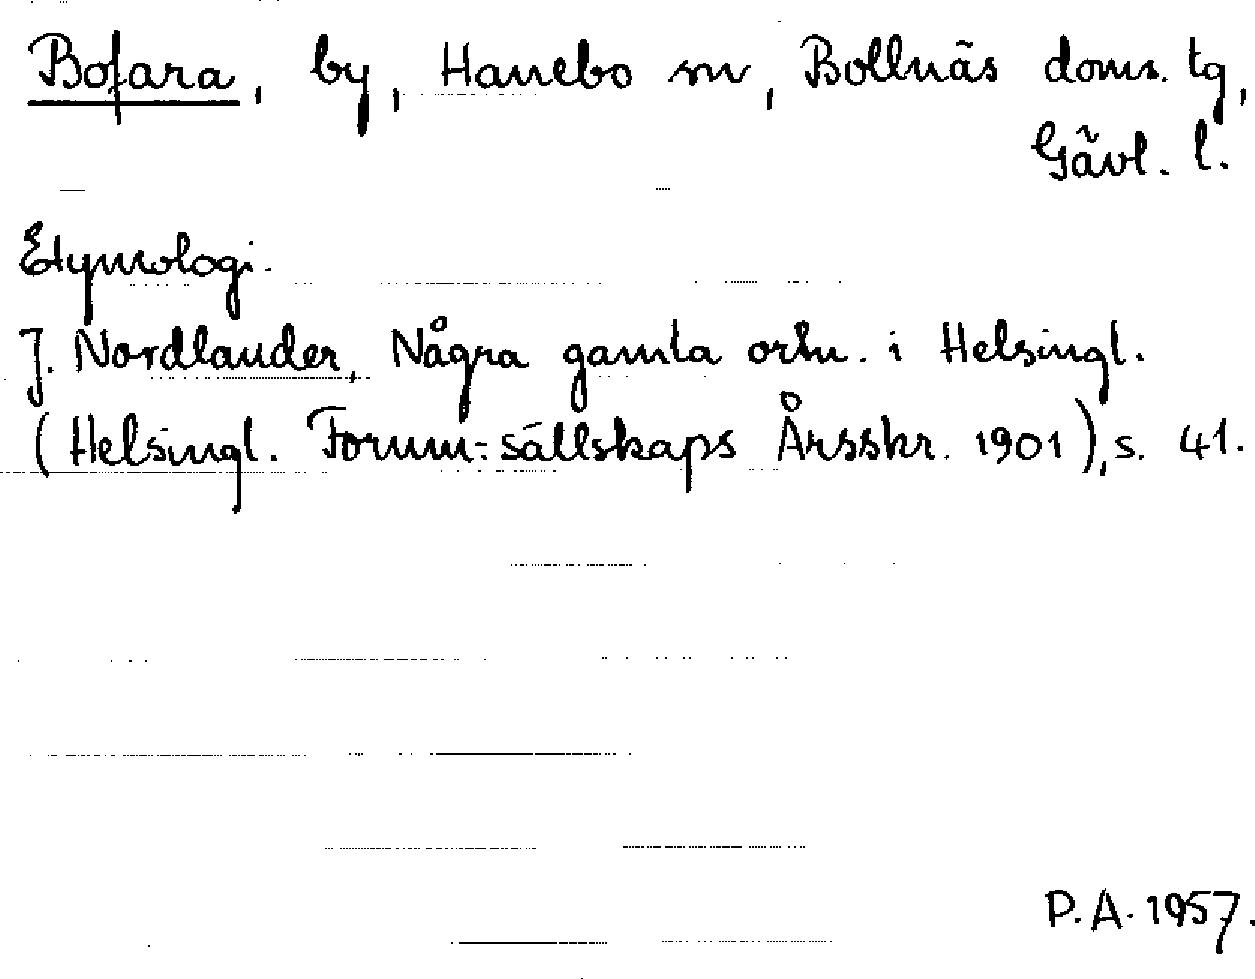 Bofara, by, Hanebo sn, Bollnäs doms. tg,
Gävl. l.
Etymologi.
J. Nordlander, Några gamla ortn. i Helsingl.
(Helsingl. Fornm.-sällskaps Årsskr. 1901), s. 41.
P.A. 1957.